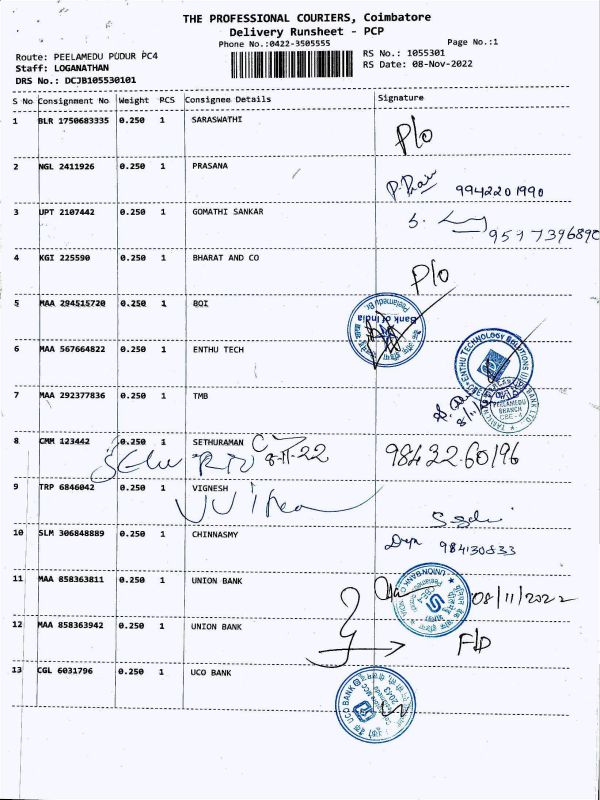 THE PROFESSIONAL COURIERS, Coimbatore
Delivery Runsheet - PCP
Phone No.:0422-3505555
Page No.:1
Route: PEELAMEDU PUDUR PC4
RS No.: 1055301
Staff: LOGANATHAN
RS Date: 08-Nov-2022
DRS No.: DCJB105530101
S No Consignment No Weight PCS Consignee Details Signature
1 BLR 1750683335 0.250 1 SARASWATHI
P/o
2 NGL 2411926 0.250 1 PRASANA
9942201990
3 UPT 2107442 0.250 1 GOMATHI SANKAR
S.
9597396890
4 KGI 225590 0.250 1 BHARAT AND CO
P/o
5 MAA 294515720 0.250 1 BOI
Bank of India
Peelamedu Br
6 MAA 567664822 0.250 1 ENTHU TECH
ENTHU TECHNOLOGY SOLUTIONS
7 MAA 292377836 0.250 1 TMB
PEELAMEDU
BRANCH
CBE - 4
8 CMM 123442 0.250 1 SETHURAMAN
8-11-22
98432.60196
9 TRP 6846042 0.250 1 VIGNESH
10 SLM 306848889 0.250 1 CHINNASMY
11 MAA 858363811 0.250 1 UNION BANK
UNION BANK
08/11/2022
12 MAA 858363942 0.250 1 UNION BANK
F/D
13 CGL 6031796 0.250 1 UCO BANK
UCO BANK